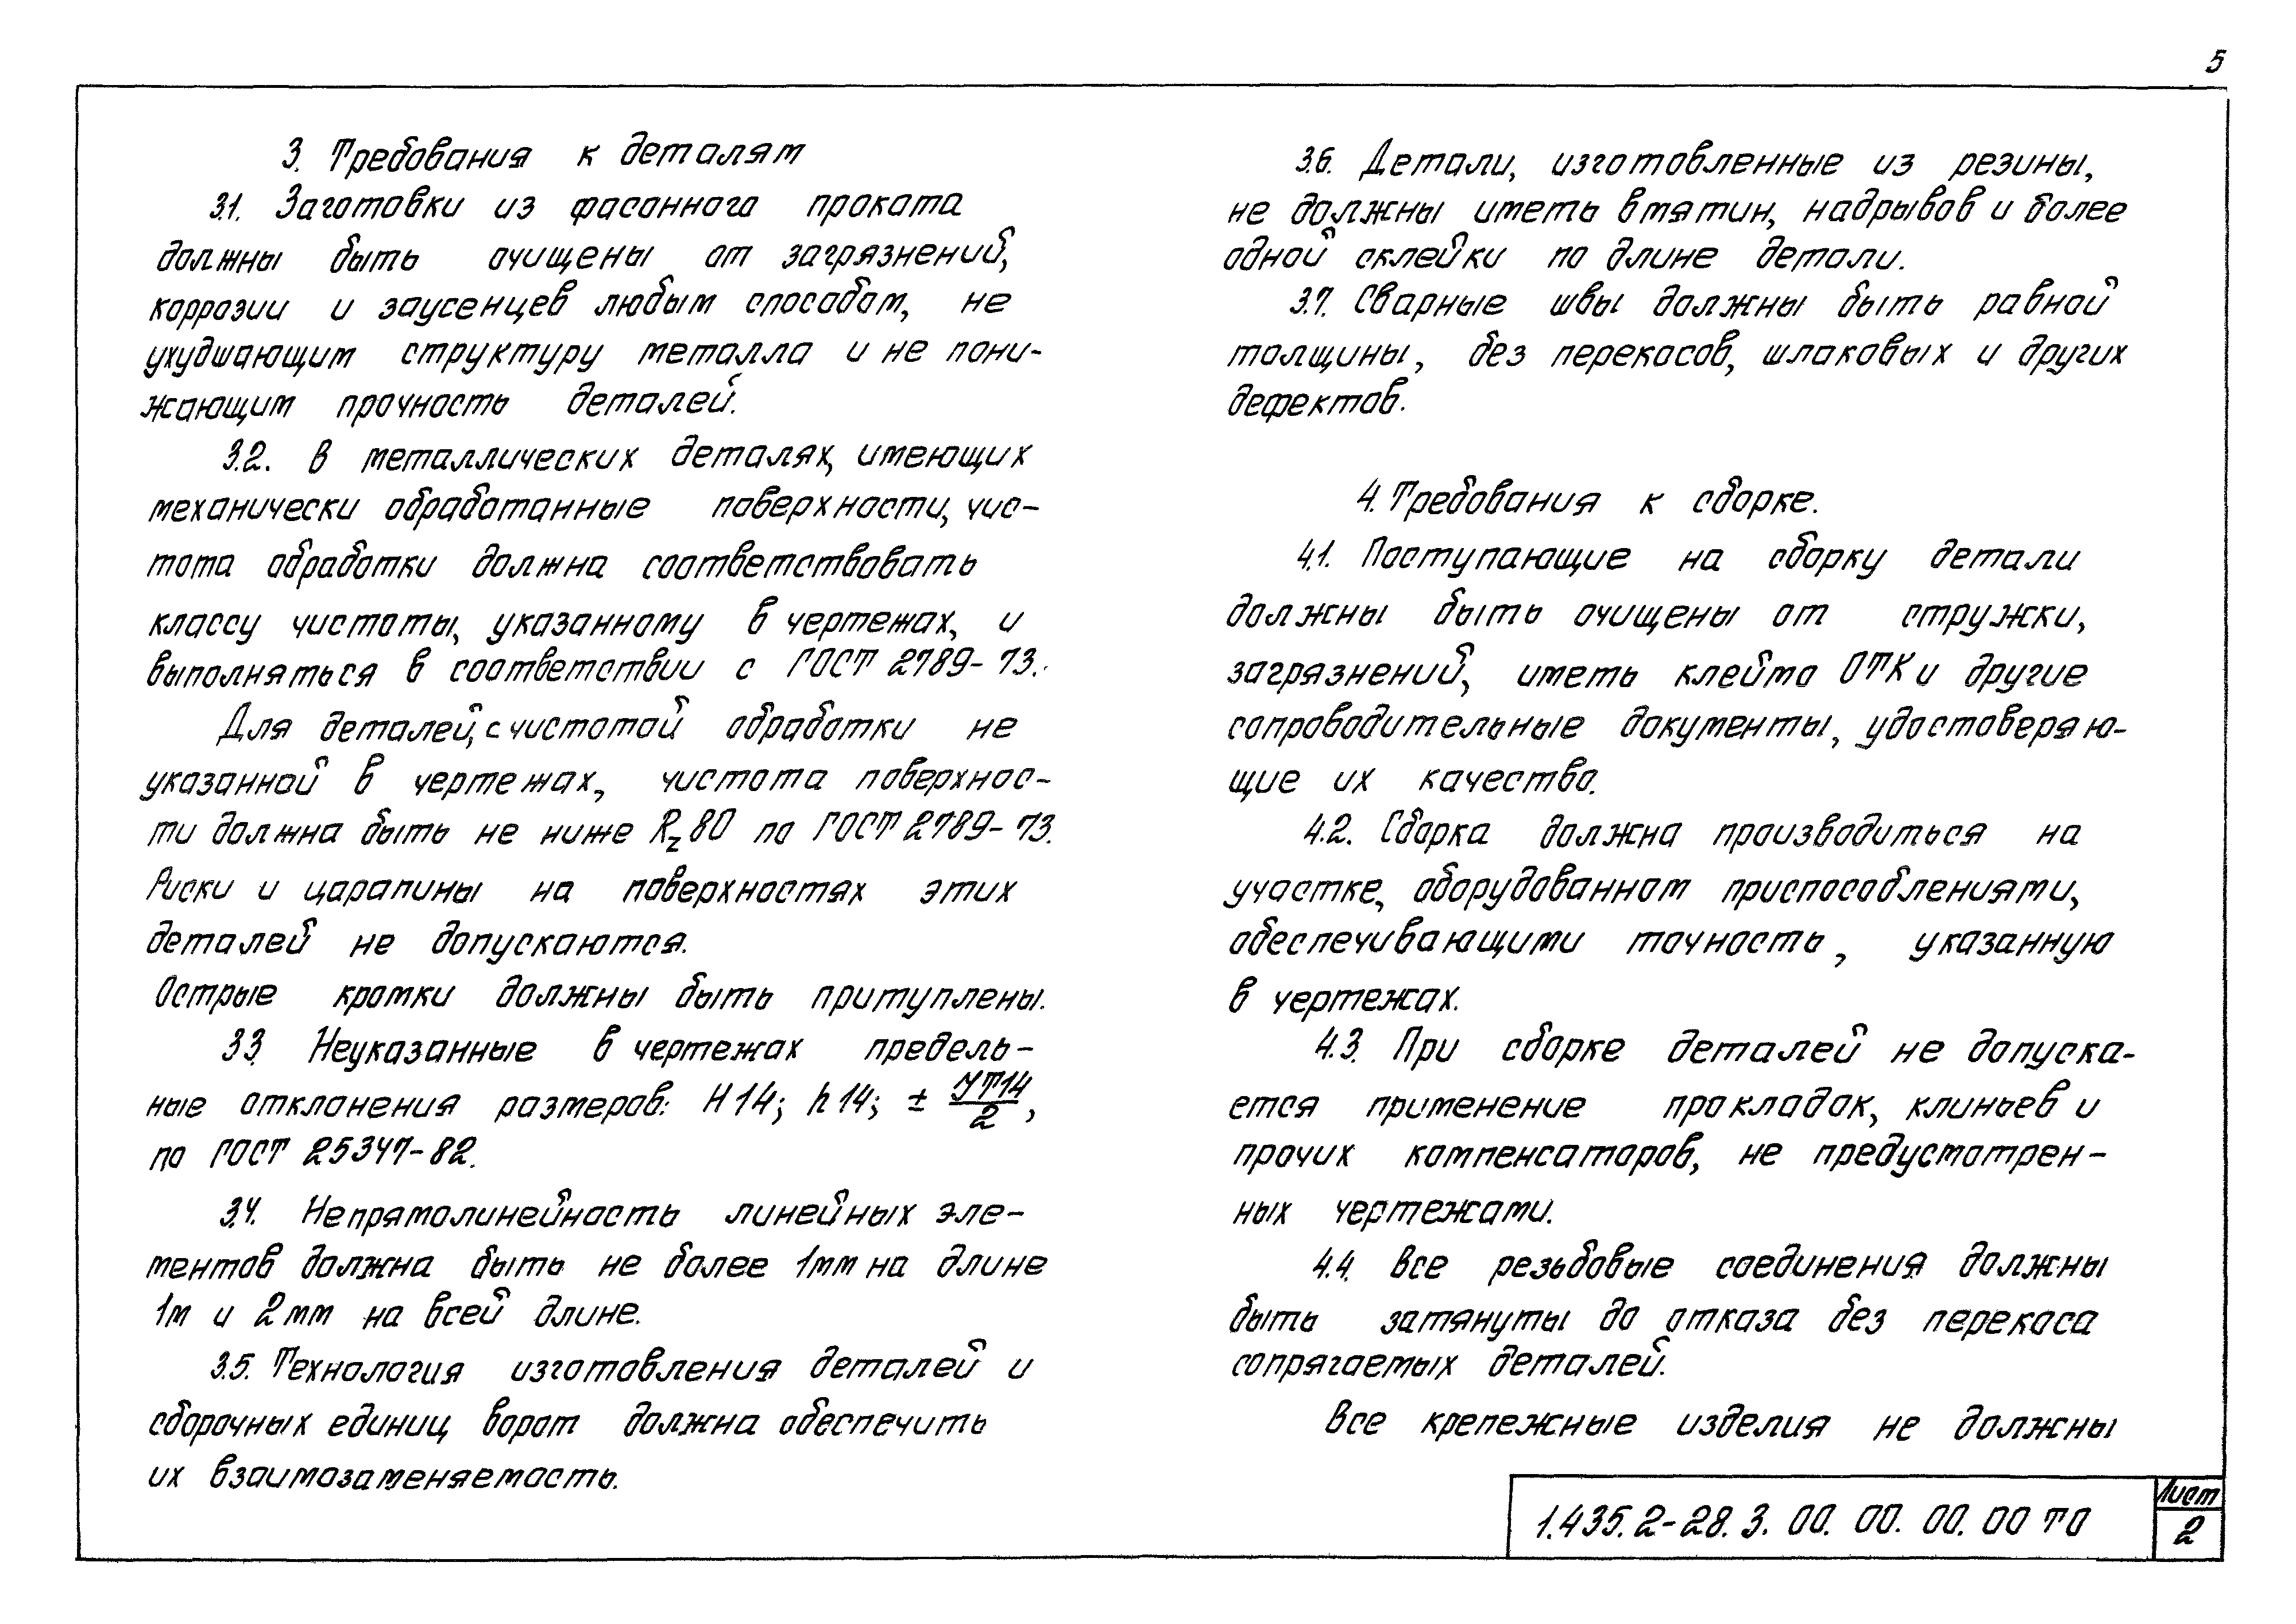 5
3. Требования к деталям
3.1. Заготовки из фасонного проката
должны быть очищены от загрязнений,
коррозии и заусенцев любым способом, не
ухудшающим структуру металла и не пони-
жающим прочность деталей.
3.2. В металлических деталях, имеющих
механически обработанные поверхности, чис-
тота обработки должна соответствовать
классу чистоты, указанному в чертежах, и
выполняться в соответствии с ГОСТ 2789-73.
Для деталей, с чистотой обработки не
указанной в чертежах, чистота поверхнос-
ти должна быть не ниже Rz 80 по ГОСТ 2789-73.
Риски и царапины на поверхностях этих
деталей не допускаются.
Острые кромки должны быть притуплены.
3.3. Неуказанные в чертежах предель-
ные отклонения размеров: H14; h14; ± УТ14/2,
по ГОСТ 25347-82.
3.4. Непрямолинейность линейных эле-
ментов должна быть не более 1мм на длине
1м и 2мм на всей длине.
3.5. Технология изготовления деталей и
сборочных единиц ворот должна обеспечить
их взаимозаменяемость.
3.6. Детали, изготовленные из резины,
не должны иметь вмятин, надрывов и более
одной склейки по длине детали.
3.7. Сварные швы должны быть равной
толщины, без перекосов, шлаковых и других
дефектов.
4. Требования к сборке.
4.1. Поступающие на сборку детали
должны быть очищены от стружки,
загрязнений, иметь клейма ОТК и другие
сопроводительные документы, удостоверяю-
щие их качество.
4.2. Сборка должна производиться на
участке, оборудованном приспособлениями,
обеспечивающими точность, указанную
в чертежах.
4.3. При сборке деталей не допуска-
ется применение прокладок, клиньев и
прочих компенсаторов, не предусмотрен-
ных чертежами.
4.4. Все резьбовые соединения должны
быть затянуты до отказа без перекоса
сопрягаемых деталей.
Все крепежные изделия не должны
1.435.2-28.3.00.00.00.00 ТО
Лист
2